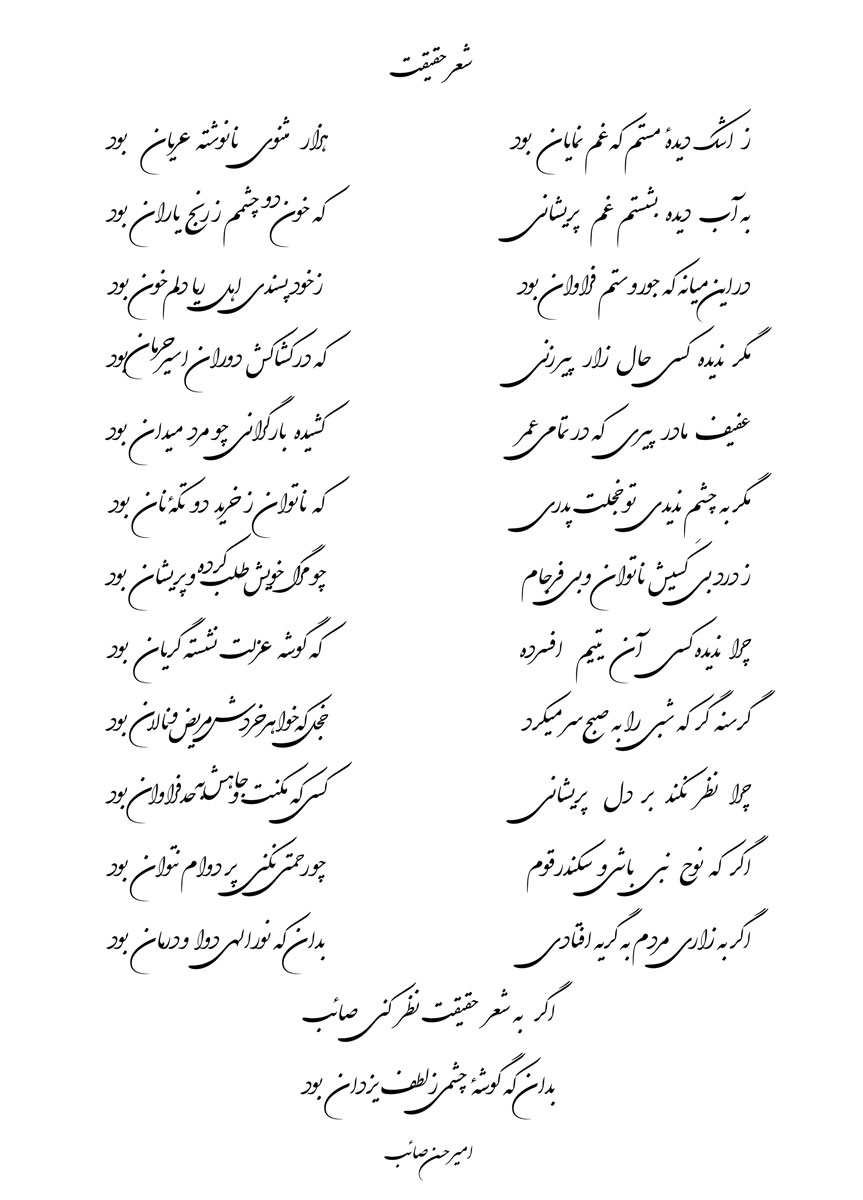 شعر حقیقت
ز اشک دیدهٔ مستم که غم نمایان بود هزار مثنوی نانوشته عریان بود
به آب دیده بشستم غم پریشانی که خون دو چشمم ز رنج یاران بود
در این میانه که جور و ستم فراوان بود ز خود پسندی اهل ریا دلم خون بود
مگر ندیده کسی حال زار پیرزنی که در کشاکش دوران اسیر حرمان بود
عفیف مادر پیری که در تمامی عمر کشیده بار گرانی چو مرد میدان بود
مگر به چشم ندیدی تو خجلت پدری که ناتوان ز خرید دو تکهٔ نان بود
ز درد بی کَسیش ناتوان و بی فرجام چو مرگ خویش طلب کرده و پریشان بود
چرا ندیده کسی آن یتیم افسرده که گوشه عزلت نشسته گریان بود
گرسنه گر که شبی را به صبح سر میکرد خجل که خواهر خردش مریض و نالان بود
چرا نظر نکند بر دل پریشانی کسی که مکنت و جاهش به حد فراوان بود
اگر که نوح نبی باشی و سکندر قوم چو رحمتی نکنی پر دوام نتوان بود
اگر به زاری مردم به گریه افتادی بدان که نور الهی دوا و درمان بود
اگر به شعر حقیقت نظر کنی صائب
بدان که گوشهٔ چشمی ز لطف یزدان بود
امیرحسن صائب